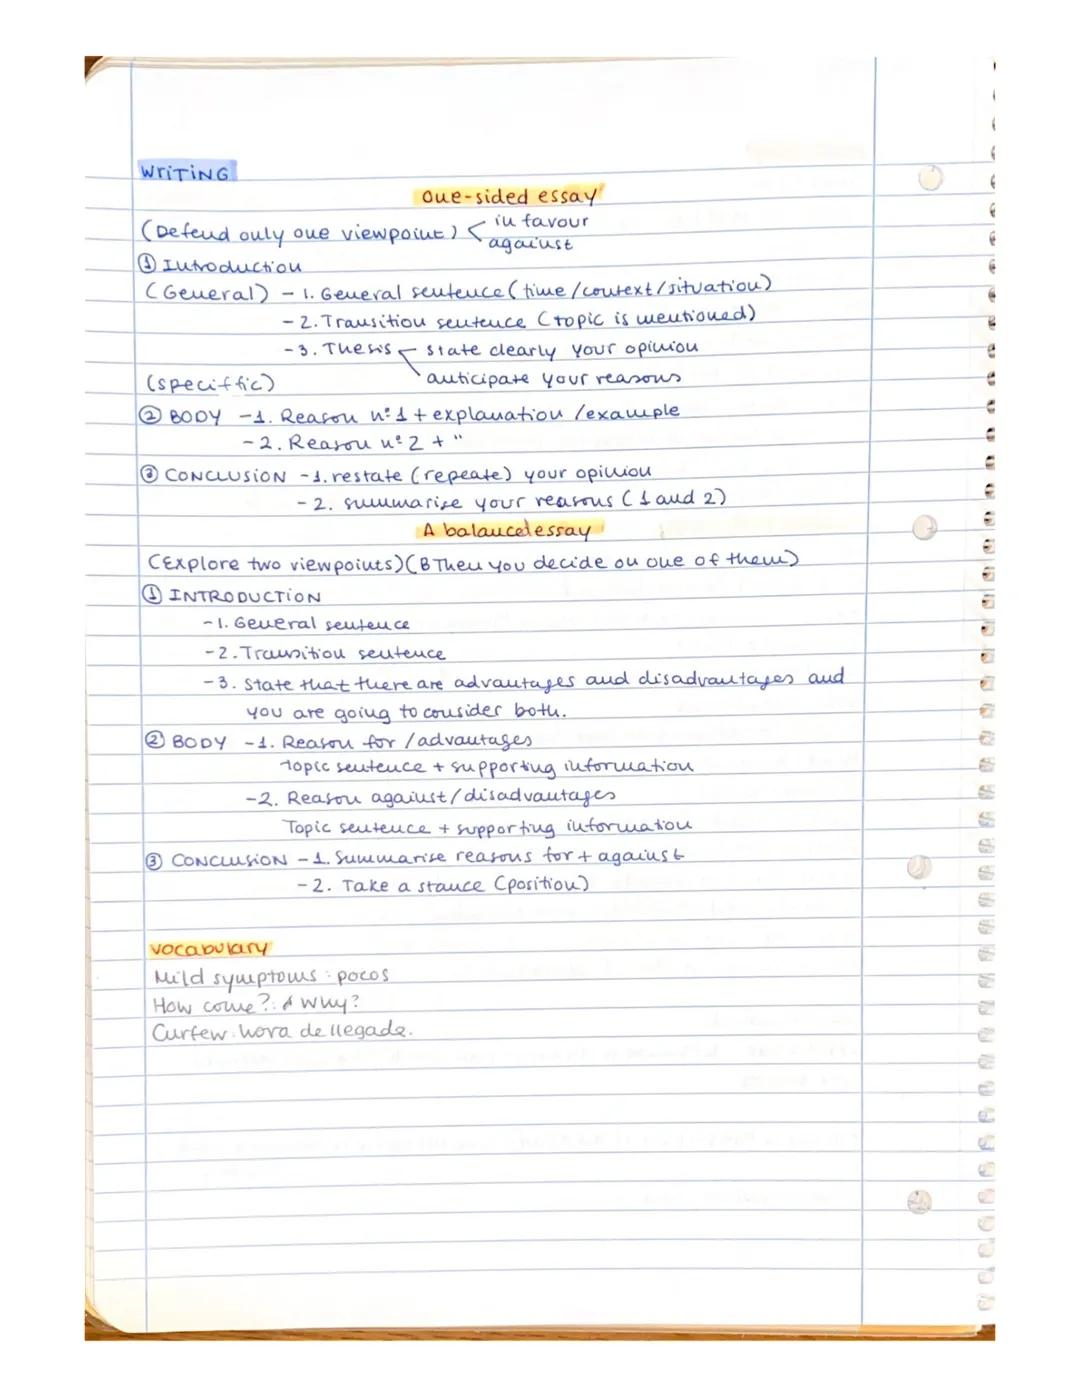 WRITING
One-sided essay
(Defend only one viewpoint) in favour
against
① Introduction
(General) - 1. General sentence (time/context/situation)
- 2. Transition sentence (topic is mentioned)
- 3. Thesis state clearly your opinion
anticipate your reasons
(speciffic)
② BODY - 1. Reason nº 1 + explanation / example
- 2. Reason nº 2 + "
③ CONCLUSION - 1. restate (repeate) your opinion
- 2. summarise your reasons (1 and 2)
A balanced essay
(Explore two viewpoints) (B Then you decide on one of them)
① INTRODUCTION
- 1. General sentence
- 2. Transition sentence
- 3. State that there are advantages and disadvantages and
you are going to consider both.
② BODY - 1. Reason for / advantages
Topic sentence + supporting information
- 2. Reason against / disadvantages
Topic sentence + supporting information
③ CONCLUSION - 1. Summarise reasons for + against
- 2. Take a stance (position)
vocabulary
Mild symptoms: pocos
How come?: Why?
Curfew: hora de llegada.